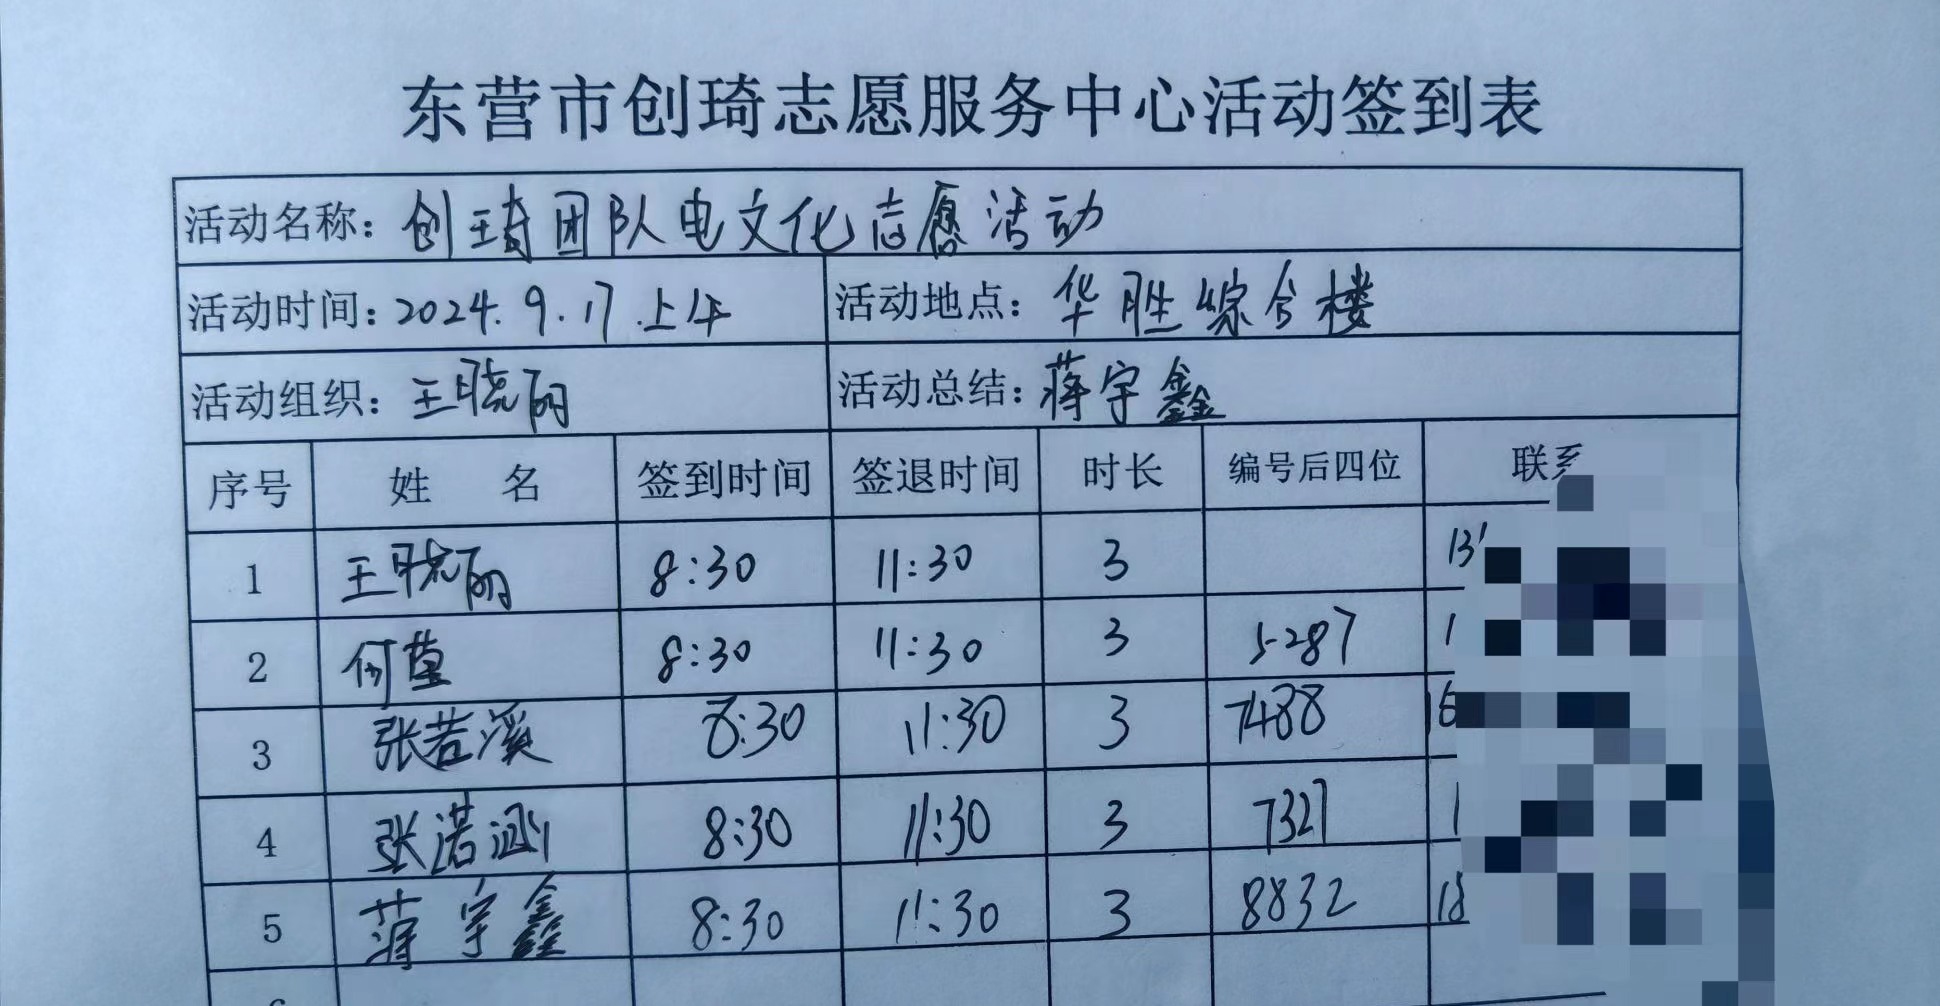 东营市创琦志愿服务中心活动签到表
活动名称：创琦团队电文化志愿活动
活动时间：2024.9.17.上午 活动地点：华胜综合楼
活动组织：王晓丽 活动总结：蒋宇鑫
序号 姓 名 签到时间 签退时间 时长 编号后四位 联系
1 王晓丽 8:30 11:30 3 13
2 何莹 8:30 11:30 3 5287 1
3 张若溪 8:30 11:30 3 7488 16
4 张诺涵 8:30 11:30 3 7327 1
5 蒋宇鑫 8:30 11:30 3 8832 18